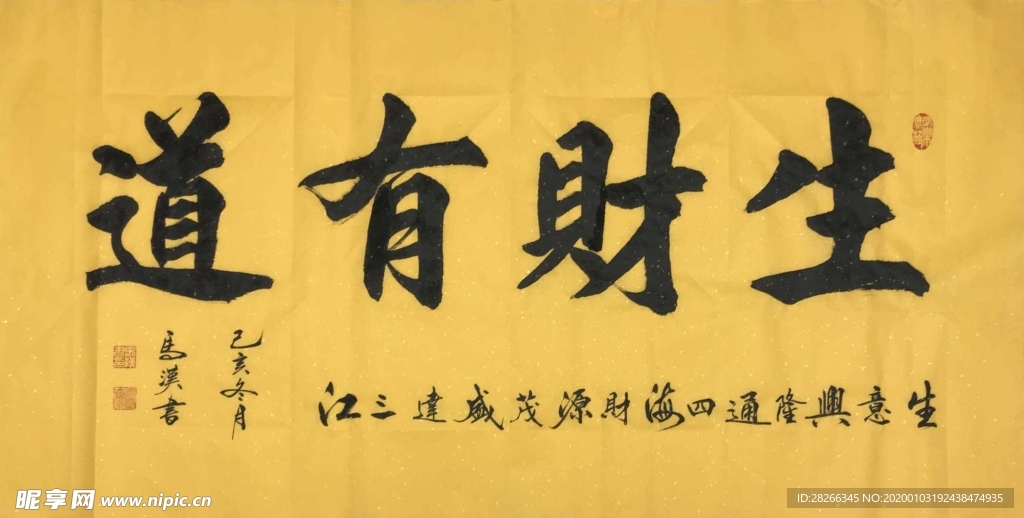 生財有道
生意興隆通四海財源茂盛達三江
己亥冬月
馬漢書
昵享网 www.nipic.cn
ID:28266345 NO:20200103192438474935